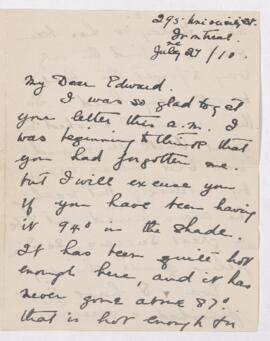 295 University St.
Montreal.
July 27/10.
My Dear Edward.
I was so glad to get
your letter this a.m. I
was beginning to think that
you had forgotten me.
but I will excuse you
if you have been having
it 94° in the shade.
It has been quite hot
enough here, and it has
never gone above 87°
that is hot enough for